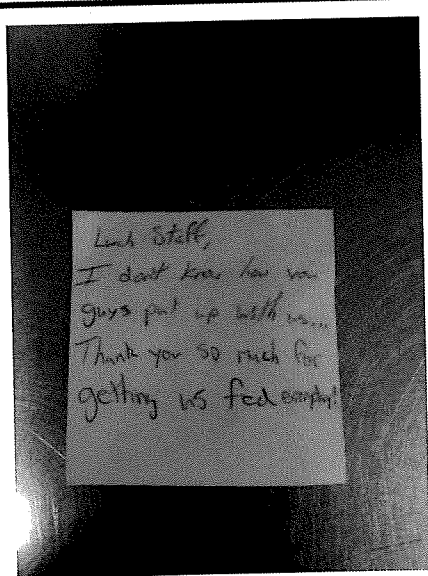 Lunch Staff,
I don't know how you
guys put up with us...
Thank you so much for
getting us fed everyday!